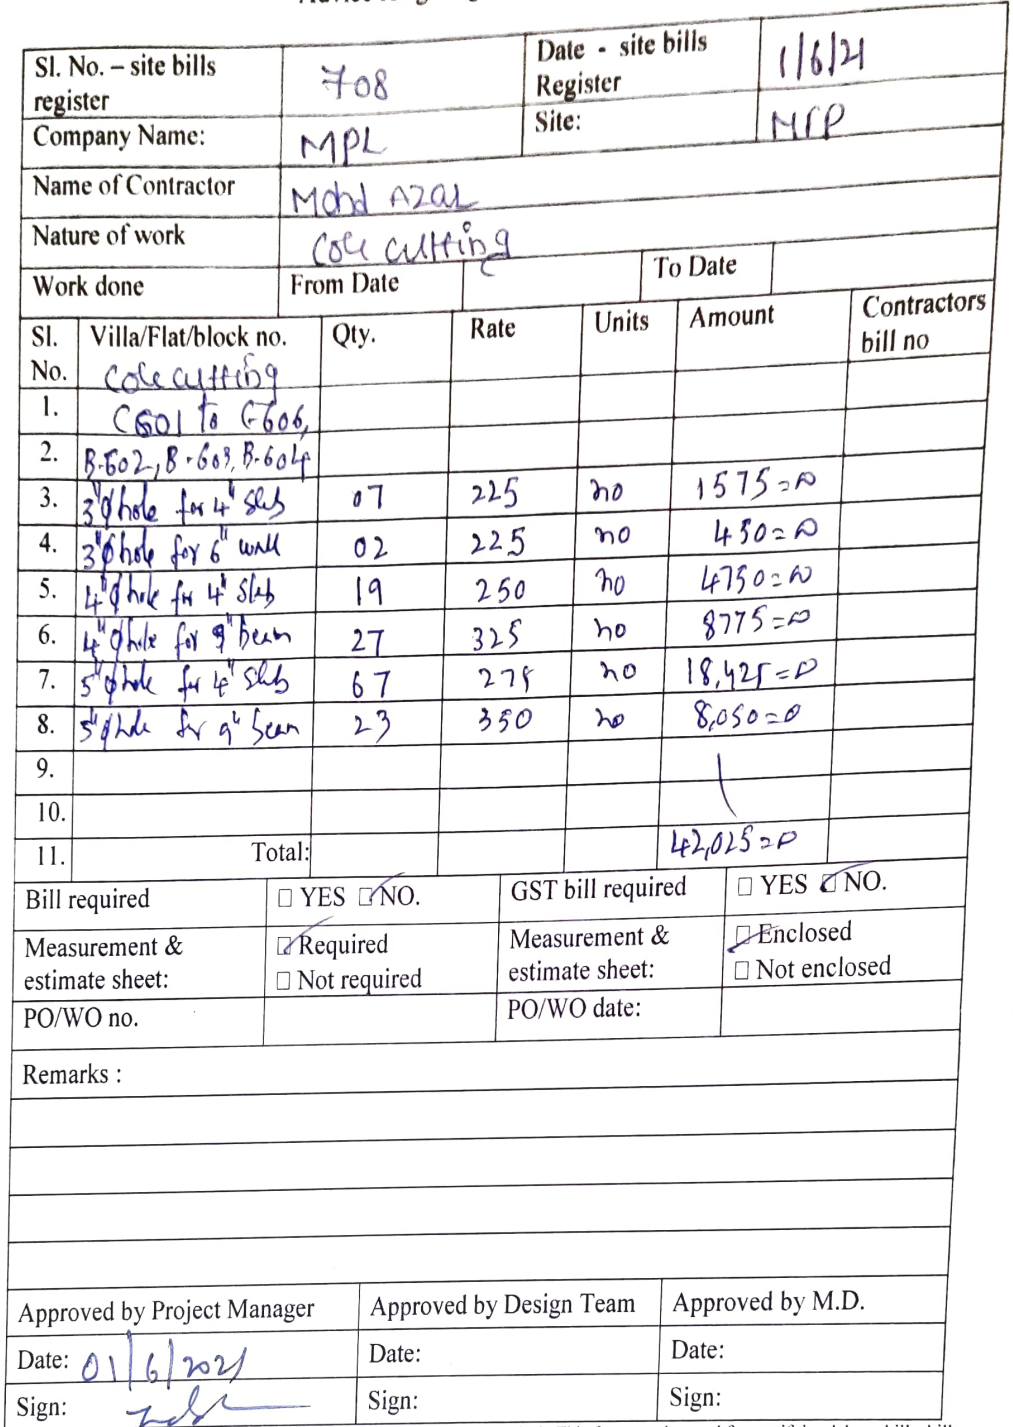 Sl. No. – site bills register 708 Date - site bills Register 1/6/21
Company Name: MPL Site: MRP
Name of Contractor Mohd Azar
Nature of work Core cutting
Work done From Date To Date
Sl. No. Villa/Flat/block no. Qty. Rate Units Amount Contractors bill no
Core cutting
1. C601 to C-606,
2. B-602, B-603, B-604
3. 3"φ hole for 4" Slab 07 225 no 1575=00
4. 3"φ hole for 6" wall 02 225 no 450=00
5. 4"φ hole for 4" Slab 19 250 no 4750=00
6. 4"φ hole for 9" beam 27 325 no 8775=00
7. 5"φ hole for 4" Slab 67 275 no 18,425=0
8. 5"φ hole for 9" beam 23 350 no 8,050=0
9.
10.
11. Total: 42,025=0
Bill required □ YES ☑ NO. GST bill required □ YES ☑ NO.
Measurement & estimate sheet: ☑ Required □ Not required Measurement & estimate sheet: ☑ Enclosed □ Not enclosed
PO/WO no. PO/WO date:
Remarks :
Approved by Project Manager Approved by Design Team Approved by M.D.
Date: 01/6/2021 Date: Date:
Sign: Sign: Sign: